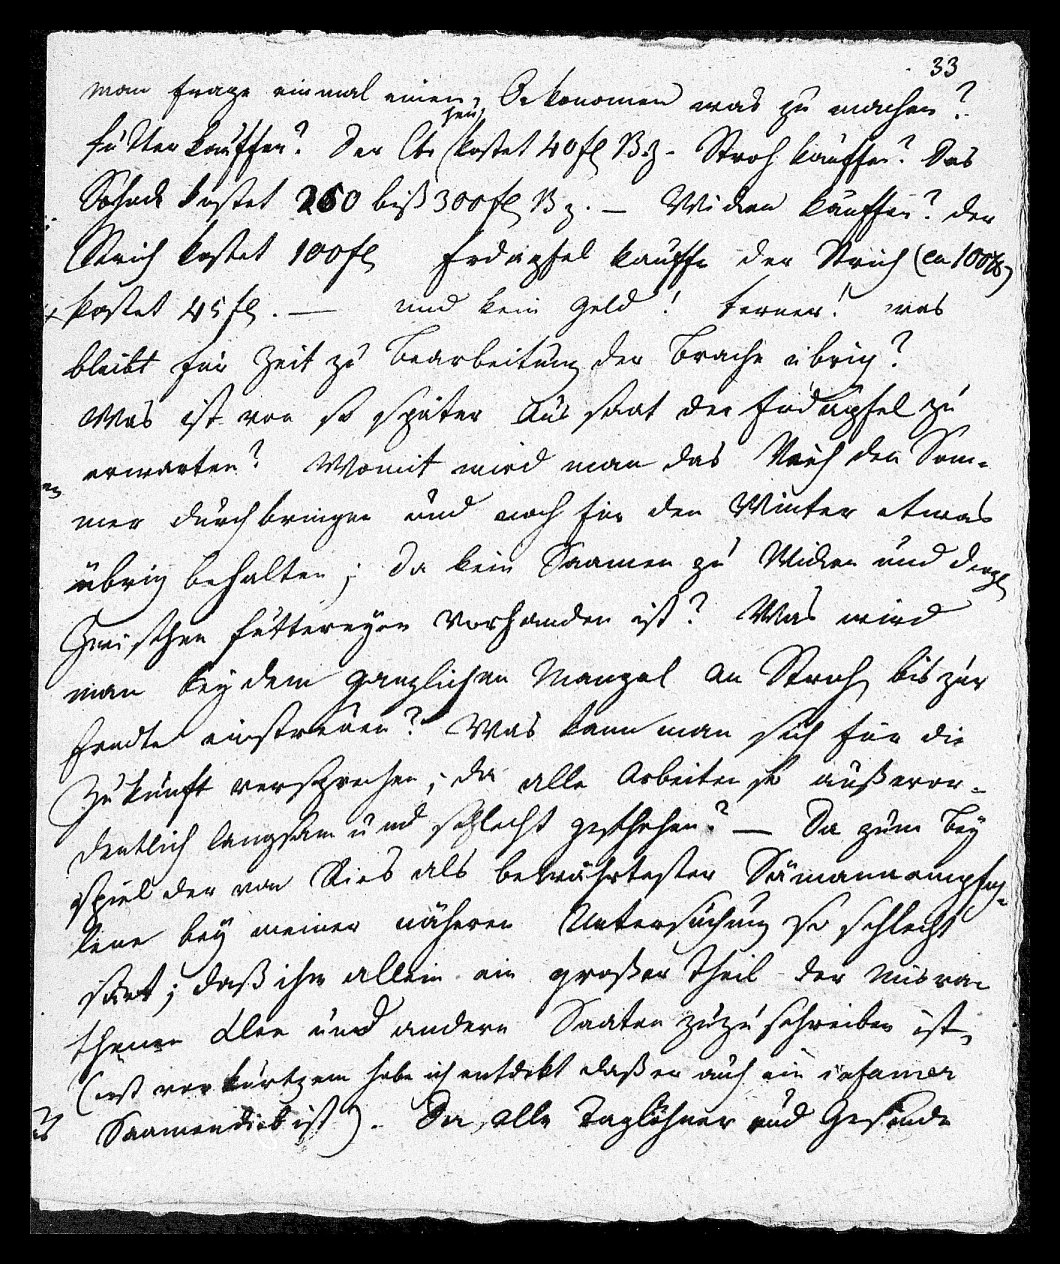 33
man frage einmal einen Oekonomen was zu machen?
Futter kauffen? Der Ctr Heu kostet 40 fl B.Z. Stroh kauffen? Das
Schock kostet 260 biß 300 fl B.Z. — Wicken kauffen? der
Strich kostet 100 fl Erdäpfel kauffe der Strich (ca 100 ℔)
kostet 45 fl. — und kein Geld! ferner! was
bleibt für Zeit zu Bearbeitung der Brache übrig?
Was ist von so später Aussaat der Erdäpfel zu
erwarten? Womit wird man das Vieh den Som-
mer durchbringen und noch für den Winter etwas
übrig behalten; da kein Saamen zu Wicken und dergl
Zwischen futtereyen vorhanden ist? Was wird
man bey dem gänzlichen Mangel an Stroh bis zur
Erndte einstreuen? Was kann man sich für die
Zukunft versprechen; da alle Arbeiten so außeror-
dentlich langsam und schlecht geschehen? — Da zum Bey
spiel der von Ries als bewährtester Sämann empfoh-
lene bey meiner näheren Untersuchung so schlecht
säet; daß ihm allein ein großer Theil der misra-
thenen Klee und andern Saaten zuzuschreiben ist,
(erst vor kurtzem habe ich entdekt daß er auch ein infamer
Saamendieb ist). Da alle Taglöhner und Gesinde